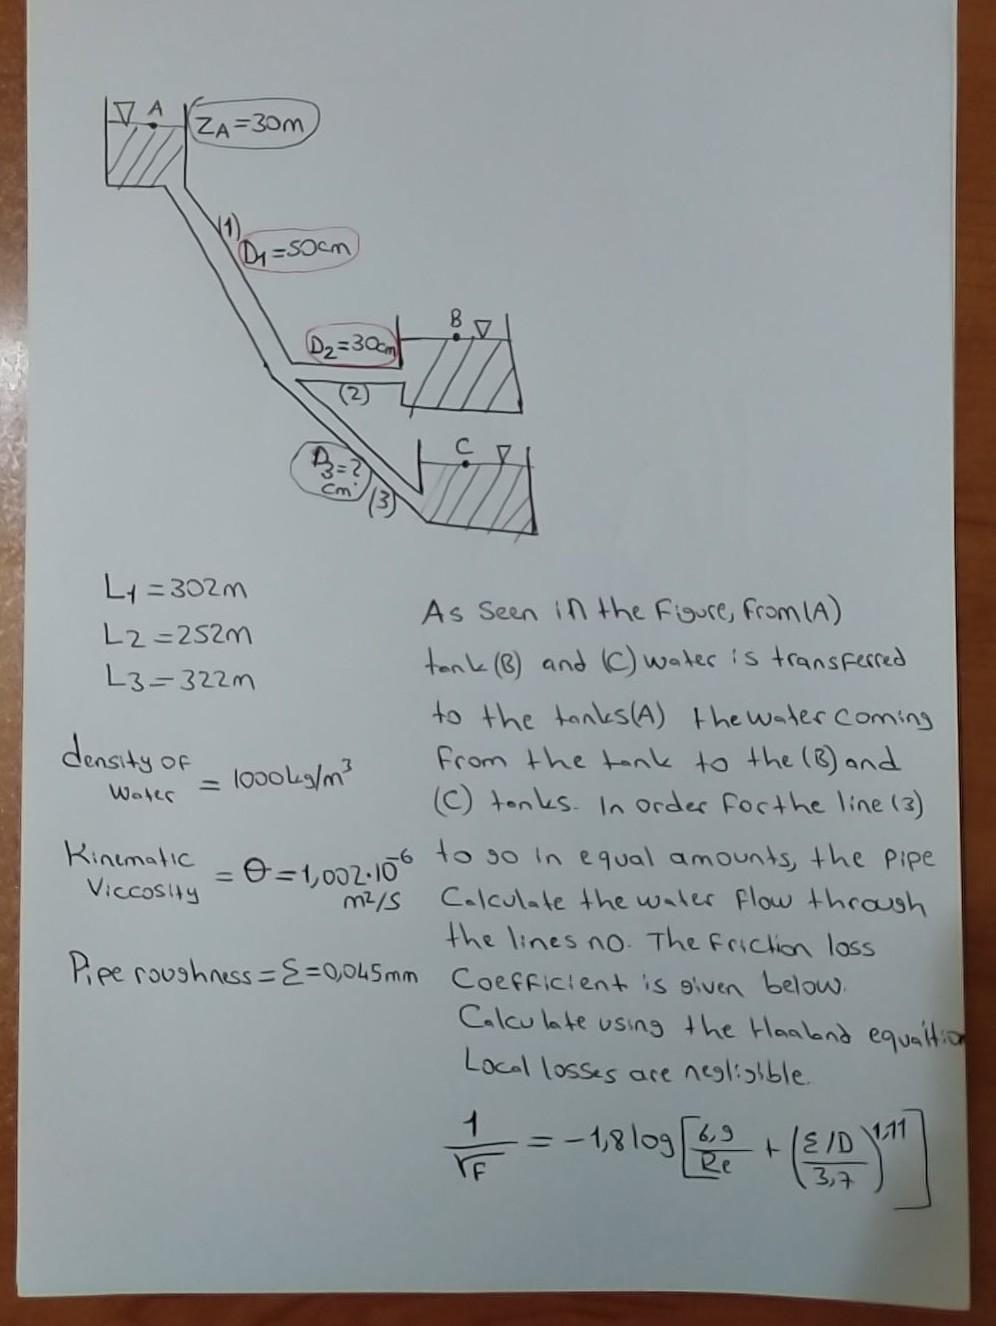 A
ZA=30m
(1)
D1=50cm
B
D2=30cm
(2)
C
D3=?
cm
(3)
L1=302m
L2=252m
L3=322m
density of
water = 1000kg/m³
Kinematic
Viccosity = θ=1,002·10⁻⁶
m²/s
Pipe roughness=Ɛ=0,045mm
As seen in the Figure, from (A)
tank (B) and (C) water is transferred
to the tanks(A) the water coming
from the tank to the (B) and
(C) tanks. In order for the line (3)
to go in equal amounts, the pipe
Calculate the water flow through
the lines no. The friction loss
Coefficient is given below.
Calculate using the Haaland equaition
Local losses are negligible.
1/√F = -1,8log[6,9/Re + (Ɛ/D/3,7)^1,11]